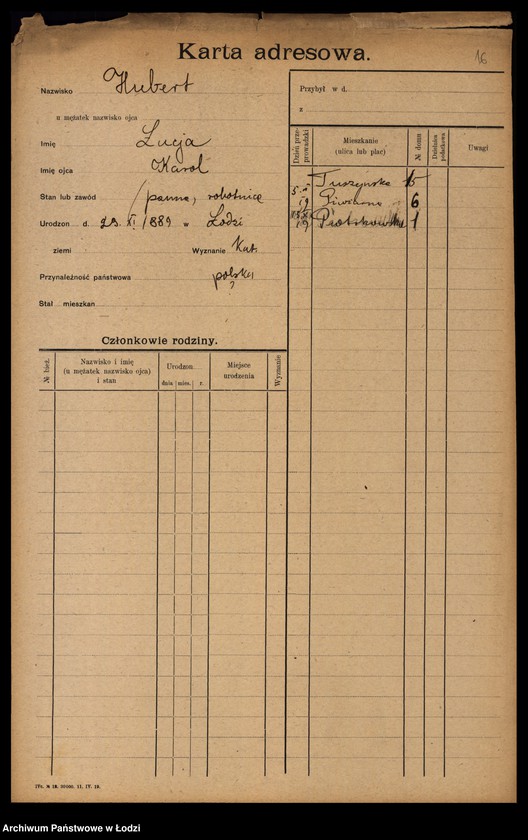 16
Karta adresowa.
Nazwisko Hubert
u mężatek nazwisko ojca
Imię Łucja
Imię ojca Karol
Stan lub zawód panna, robotnica
Urodzon. d. 23. XI. 1889 w Łodzi
ziemi Wyznanie Kat.
Przynależność państwowa polska
?
Stał. mieszkan.
Członkowie rodziny.
№ bież.
Nazwisko i imię
(u mężatek nazwisko ojca)
i stan
Urodzon.
dnia mies. r.
Miejsce
urodzenia
Wyznanie
Przybył w d.
z
Dzień prze-
prowadzki
Mieszkanie
(ulica lub plac)
№ domu
Dzielnica
podatkowa
Uwagi
Tuszyńska 15
19 Piwna 6
19 Piotrkowska 1
Archiwum Państwowe w Łodzi